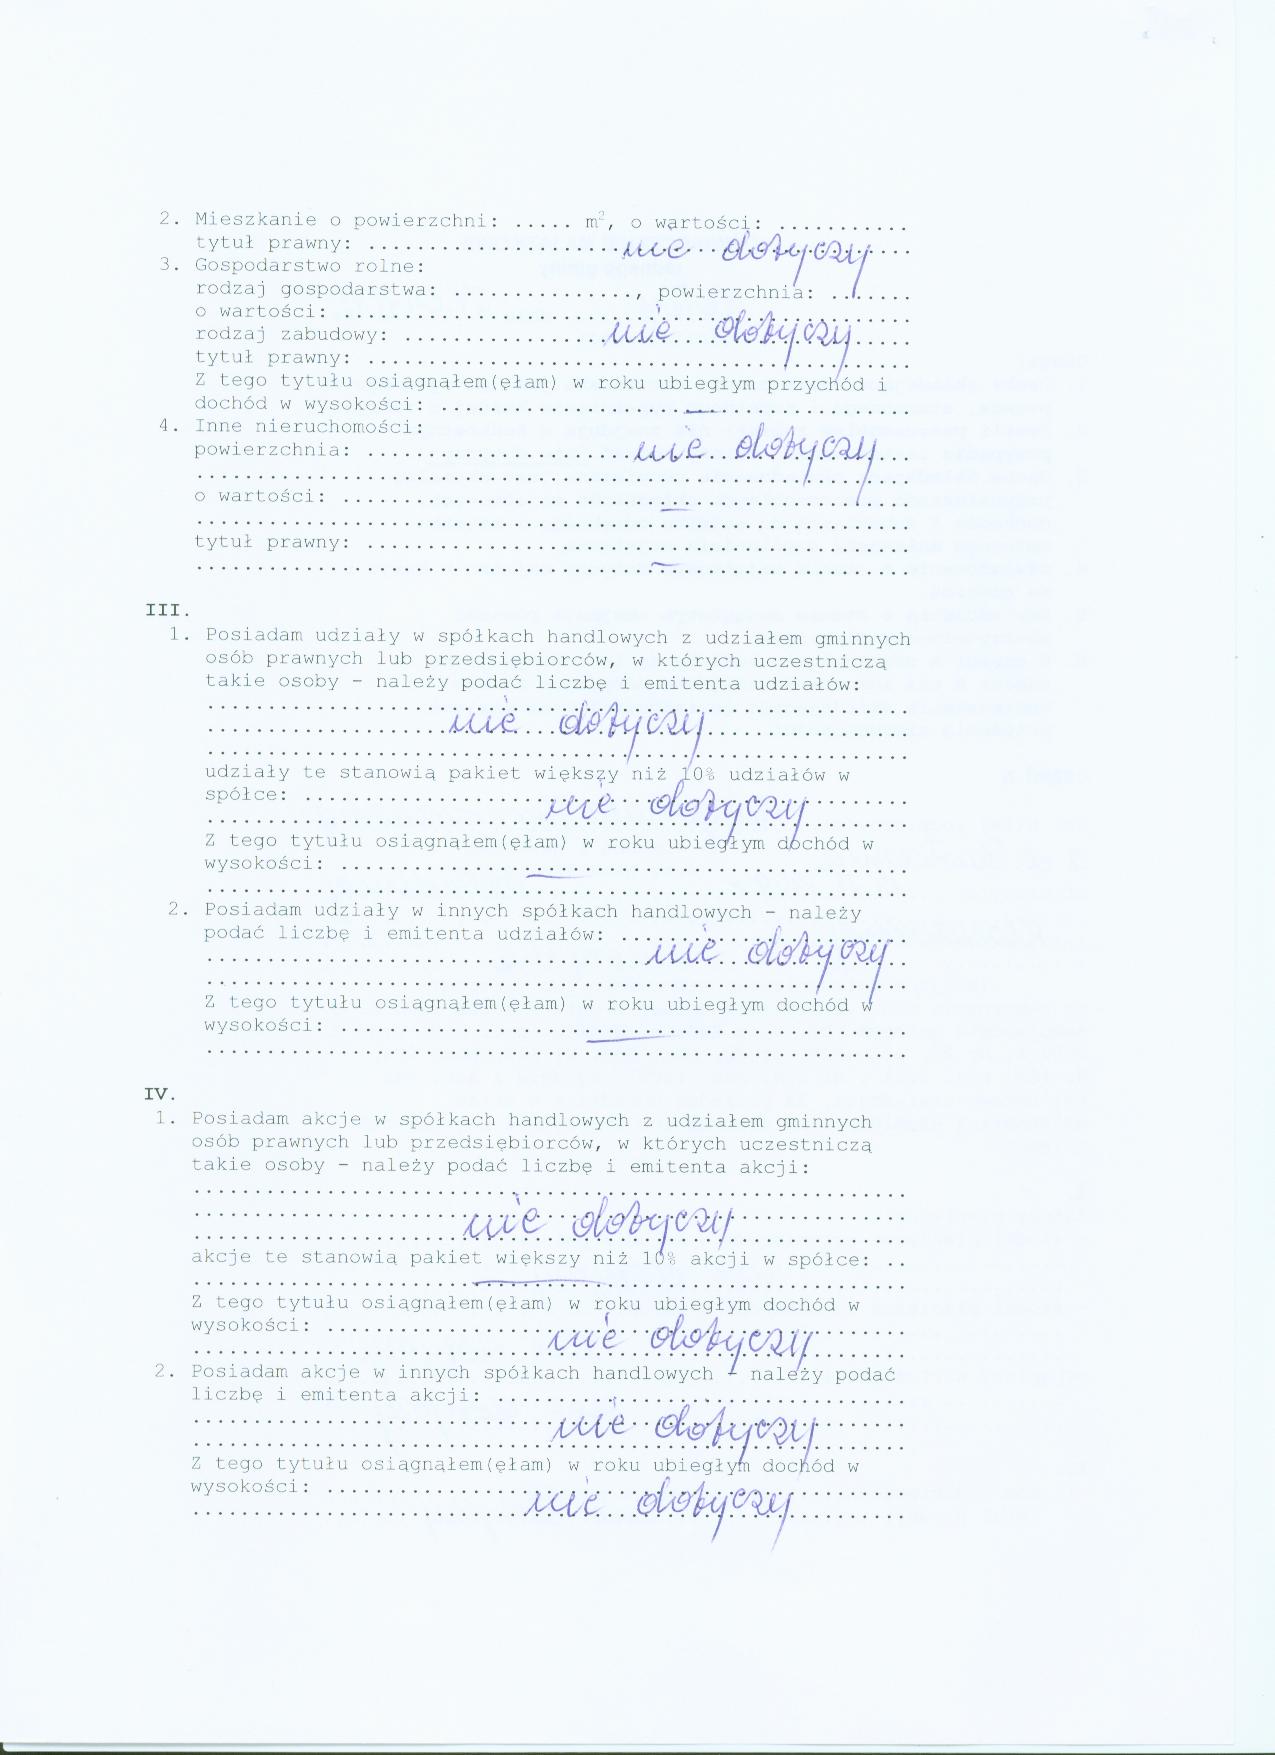 2. Mieszkanie o powierzchni: ..... m², o wartości: ...........
tytuł prawny: ..................... nie dotyczy ....
3. Gospodarstwo rolne:
rodzaj gospodarstwa: ..............., powierzchnia: .......
o wartości: ...............................................
rodzaj zabudowy: ................. nie dotyczy .....
tytuł prawny: .............................................
Z tego tytułu osiągnąłem(ęłam) w roku ubiegłym przychód i
dochód w wysokości: .................... — ................
4. Inne nieruchomości:
powierzchnia: ...................... nie dotyczy ...
...........................................................
o wartości: .......................... — ..................
...........................................................
tytuł prawny: .............................................
..................................... — ...................
III.
1. Posiadam udziały w spółkach handlowych z udziałem gminnych
osób prawnych lub przedsiębiorców, w których uczestniczą
takie osoby – należy podać liczbę i emitenta udziałów:
..........................................................
.................... nie dotyczy .................
..........................................................
udziały te stanowią pakiet większy niż 10% udziałów w
spółce: .................... nie dotyczy ........
..........................................................
Z tego tytułu osiągnąłem(ęłam) w roku ubiegłym dochód w
wysokości: ................ — ...........................
..........................................................
2. Posiadam udziały w innych spółkach handlowych – należy
podać liczbę i emitenta udziałów: ........................
.................................... nie dotyczy ..
..........................................................
Z tego tytułu osiągnąłem(ęłam) w roku ubiegłym dochód w
wysokości: .................... — .......................
..........................................................
IV.
1. Posiadam akcje w spółkach handlowych z udziałem gminnych
osób prawnych lub przedsiębiorców, w których uczestniczą
takie osoby – należy podać liczbę i emitenta akcji:
...........................................................
...................... nie dotyczy ...............
...........................................................
akcje te stanowią pakiet większy niż 10% akcji w spółce: ..
....................... — .................................
Z tego tytułu osiągnąłem(ęłam) w roku ubiegłym dochód w
wysokości: .................. nie dotyczy ........
...........................................................
2. Posiadam akcje w innych spółkach handlowych – należy podać
liczbę i emitenta akcji: ..................................
.............................. nie dotyczy .......
...........................................................
Z tego tytułu osiągnąłem(ęłam) w roku ubiegłym dochód w
wysokości: ................................................
............................ nie dotyczy .........